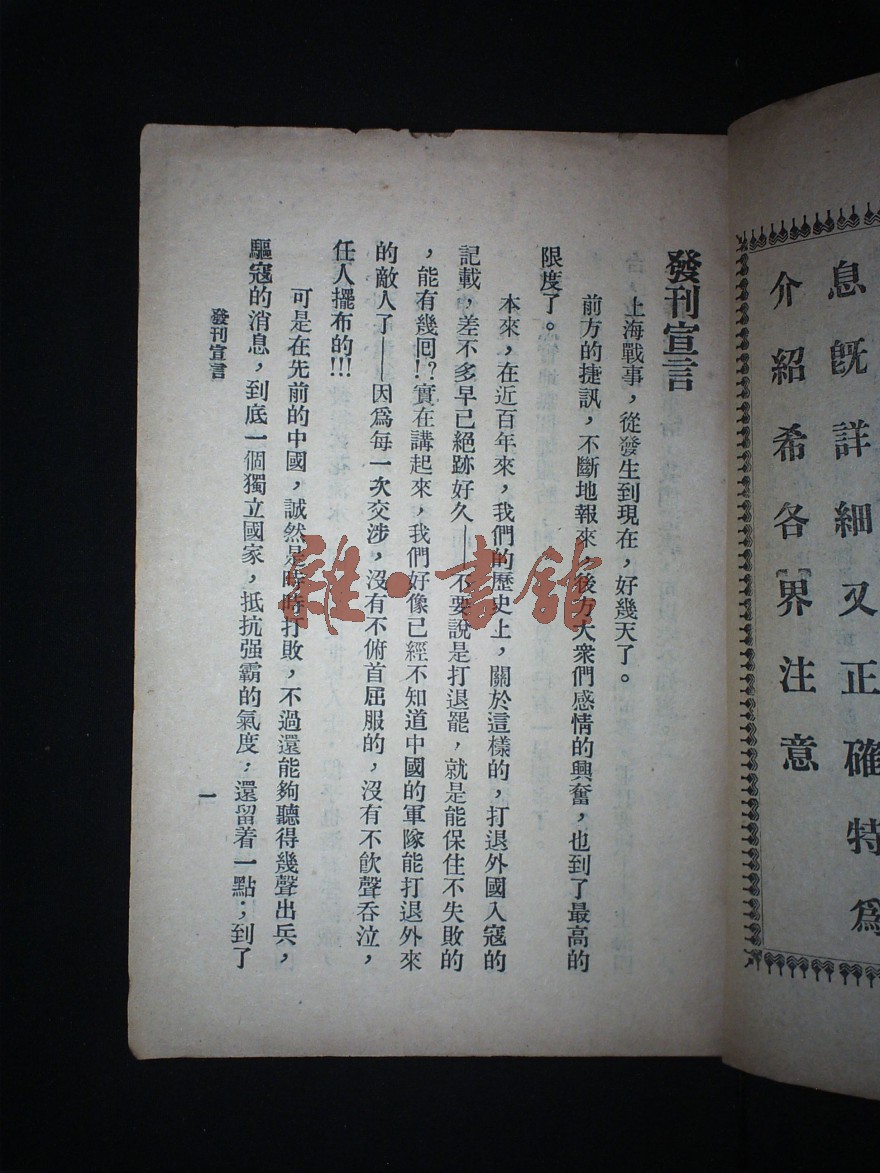 息既詳細又正確特爲
介紹希各界注意
發刊宣言
上海戰事，從發生到現在，好幾天了。
前方的捷訊，不斷地報來，後方大衆們感情的興奮，也到了最高的
限度了。
本來，在近百年來，我們的歷史上，關於這樣的，打退外國入寇的
記載，差不多早已絕跡好久——不要說是打退罷，就是能保住不失敗的
，能有幾囘！？實在講起來，我們好像已經不知道中國的軍隊能打退外來
的敵人了——因爲每一次交涉，沒有不俯首屈服的，沒有不飮聲吞泣，
任人擺布的！！！
可是在先前的中國，誠然是時時打敗，不過還能夠聽得幾聲出兵，
驅寇的消息，到底一個獨立國家，抵抗强霸的氣度，還留着一點；到了
發刊宣言
一
雜·書館